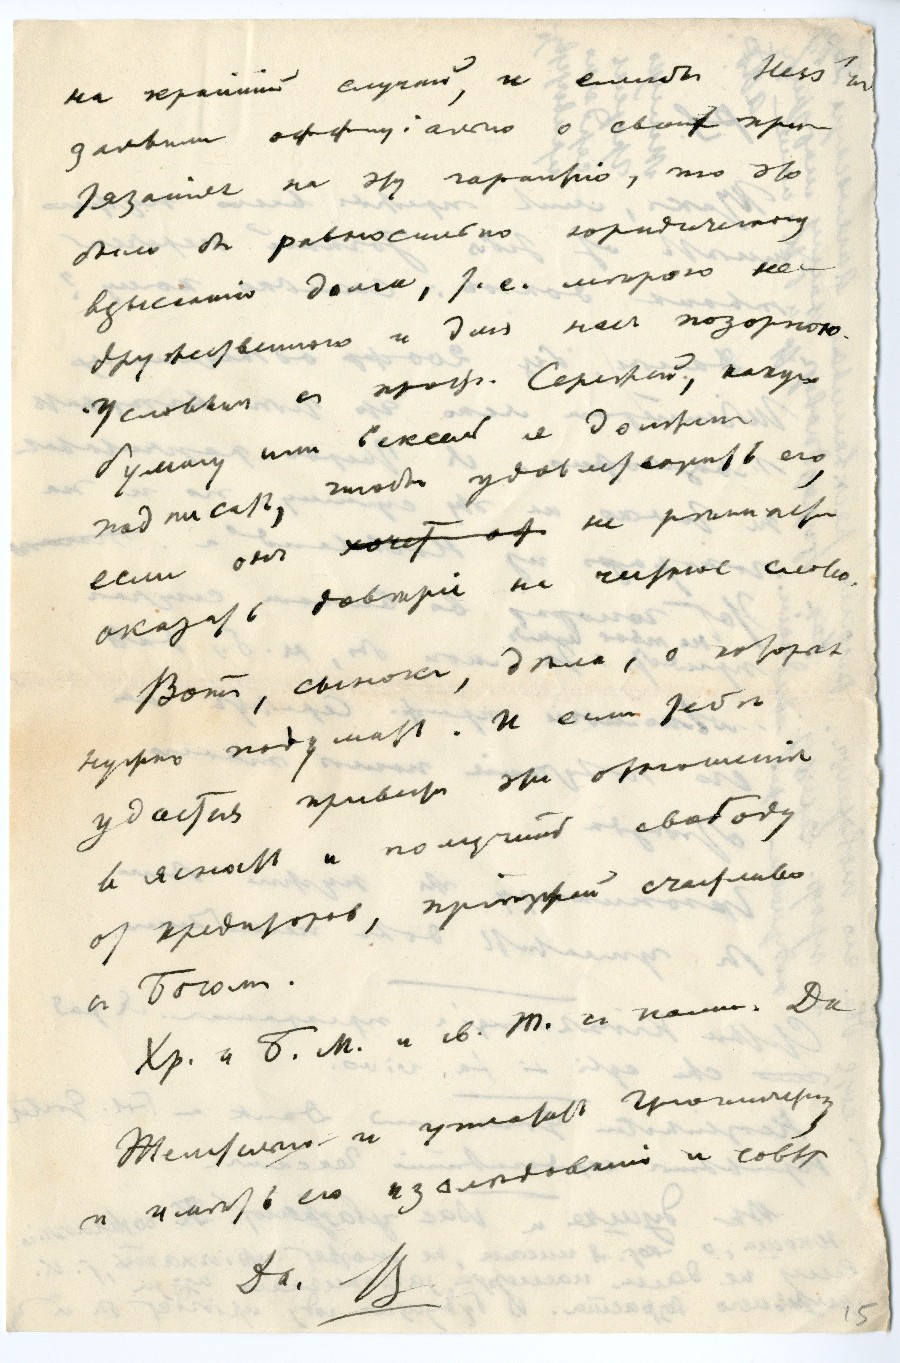 на крайній случай, и если бы Hess
заявили оффиціально о своих при-
тязаніях на эту гарантію, то это
было бы равносильно юридическому
взысканію долга, т. е. мѣрою не-
дружественною и для нас позорною.
Условься с проф. Сережей, какую
бумагу или вексель я должен
подписать, чтобы удовлетворить его,
если онъ хочет от не рѣшится
оказать довѣріе на честное слово.
Вотъ, сынокъ, дѣла, о которых
нужно подумать. И если тебѣ
удастся привести эти отношенія
в ясность и получить свободу
от кредиторов, пріѣзжай счастливо
с Богом.
Хр. и Б. М. и св. Т. с нами. Да
Желательно и
и имѣть его изслѣдованію и совѣт
Да. В
15